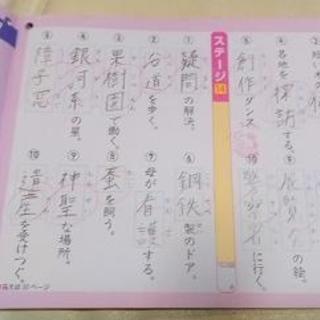 各地を探訪する。
⑤創作ダンス
の絵。
⑩警察署に行く。
ステージ14
①疑問の解決。
②沿道を歩く。
③果樹園で働く。
④銀河系の星。
⑤障子窓
⑥鋼鉄製のドア。
⑦母が看護する。
⑧蚕を飼う。
⑨神聖な場所。
⑩遺産を受けつぐ。